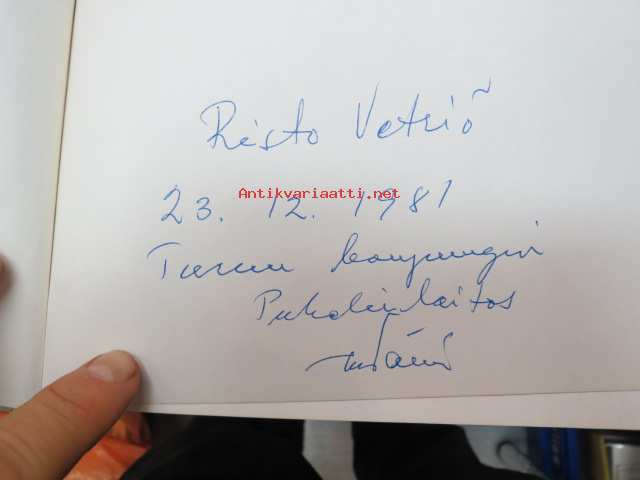 Risto Vetriö
Antikvariaatti.net
23. 12. 1981
Turun kaupungin
Puhelinlaitos